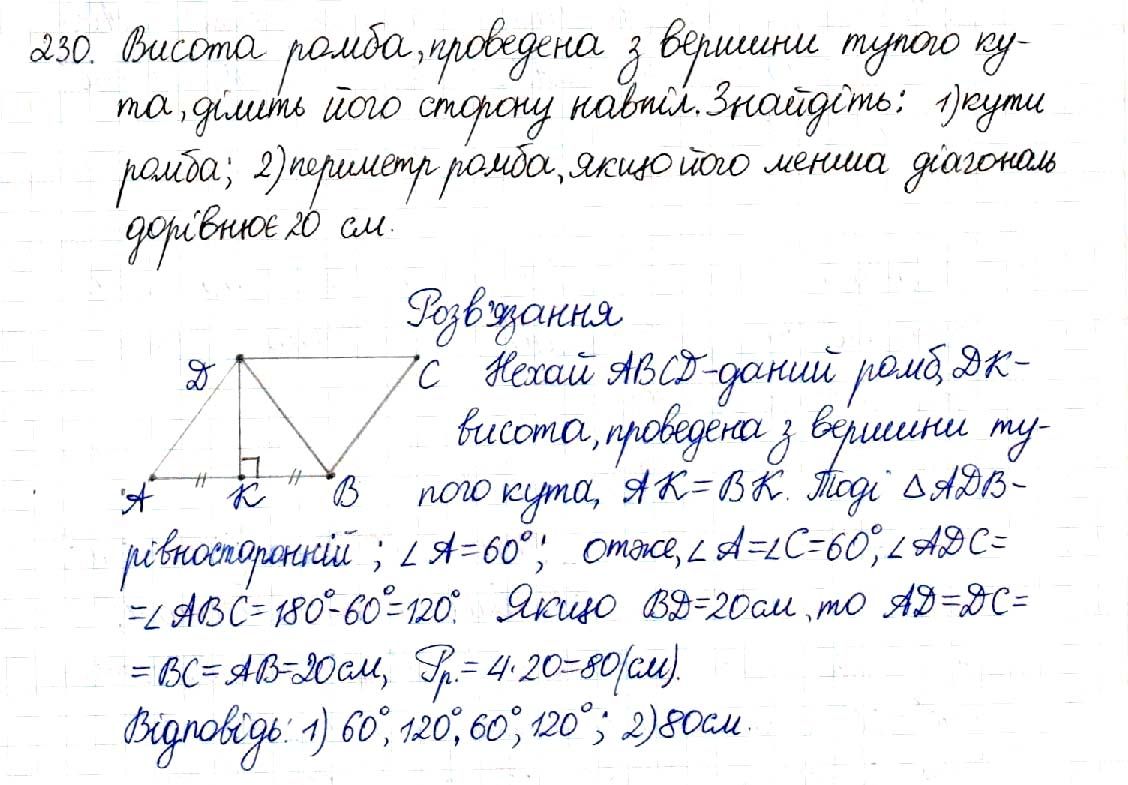 230. Висота ромба, проведена з вершини тупого ку-
та, ділить його сторону навпіл. Знайдіть: 1) кути
ромба; 2) периметр ромба, якщо його менша діагональ
дорівнює 20 см.
Розв'язання
D
C
A
K
B
Нехай ABCD - даний ромб, DK -
висота, проведена з вершини ту-
пого кута, AK = BK. Тоді △ADB -
рівносторонній; ∠A = 60°; отже, ∠A = ∠C = 60°, ∠ADC =
= ∠ABC = 180° - 60° = 120°. Якщо BD = 20 см, то AD = DC =
= BC = AB = 20 см, Pр. = 4 · 20 = 80 (см).
Відповідь: 1) 60°, 120°, 60°, 120°; 2) 80 см.